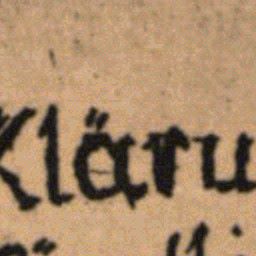 Kläru